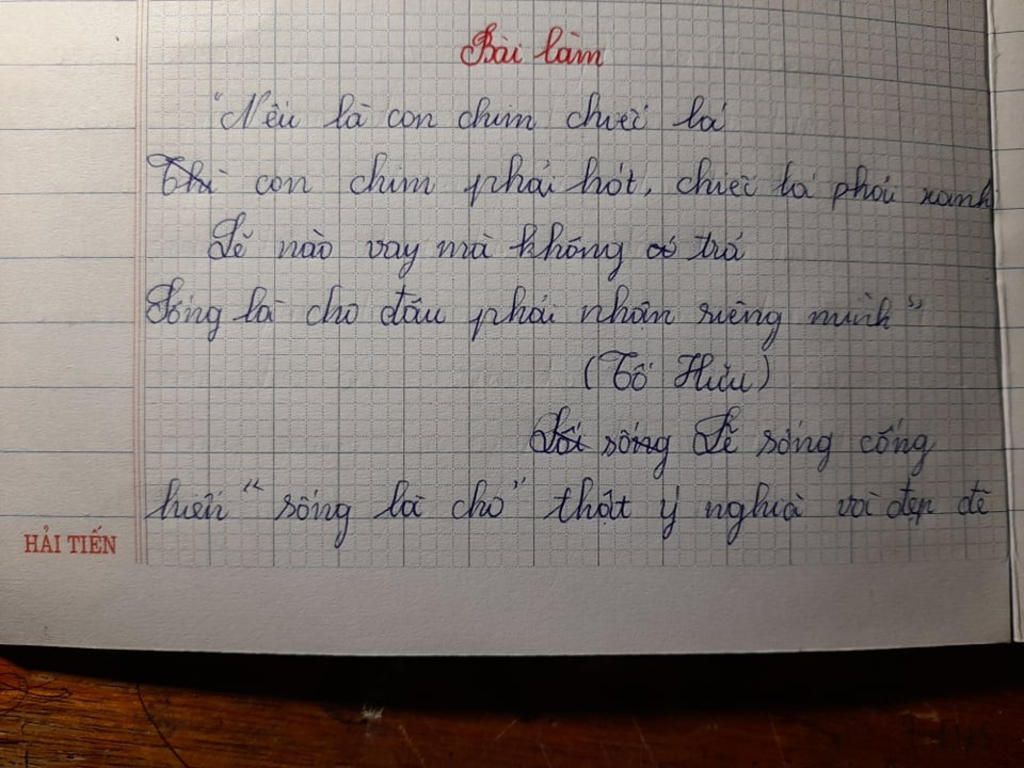 Bài làm
"Nếu là con chim chiếc lá
Thì con chim phải hót, chiếc lá phải xanh
Lẽ nào vay mà không có trả
Sống là cho đâu phải nhận riêng mình"
(Tố Hữu)
sống Lẽ sống cống
hiến "sống là cho" thật ý nghĩa và đẹp đẽ
HẢI TIẾN